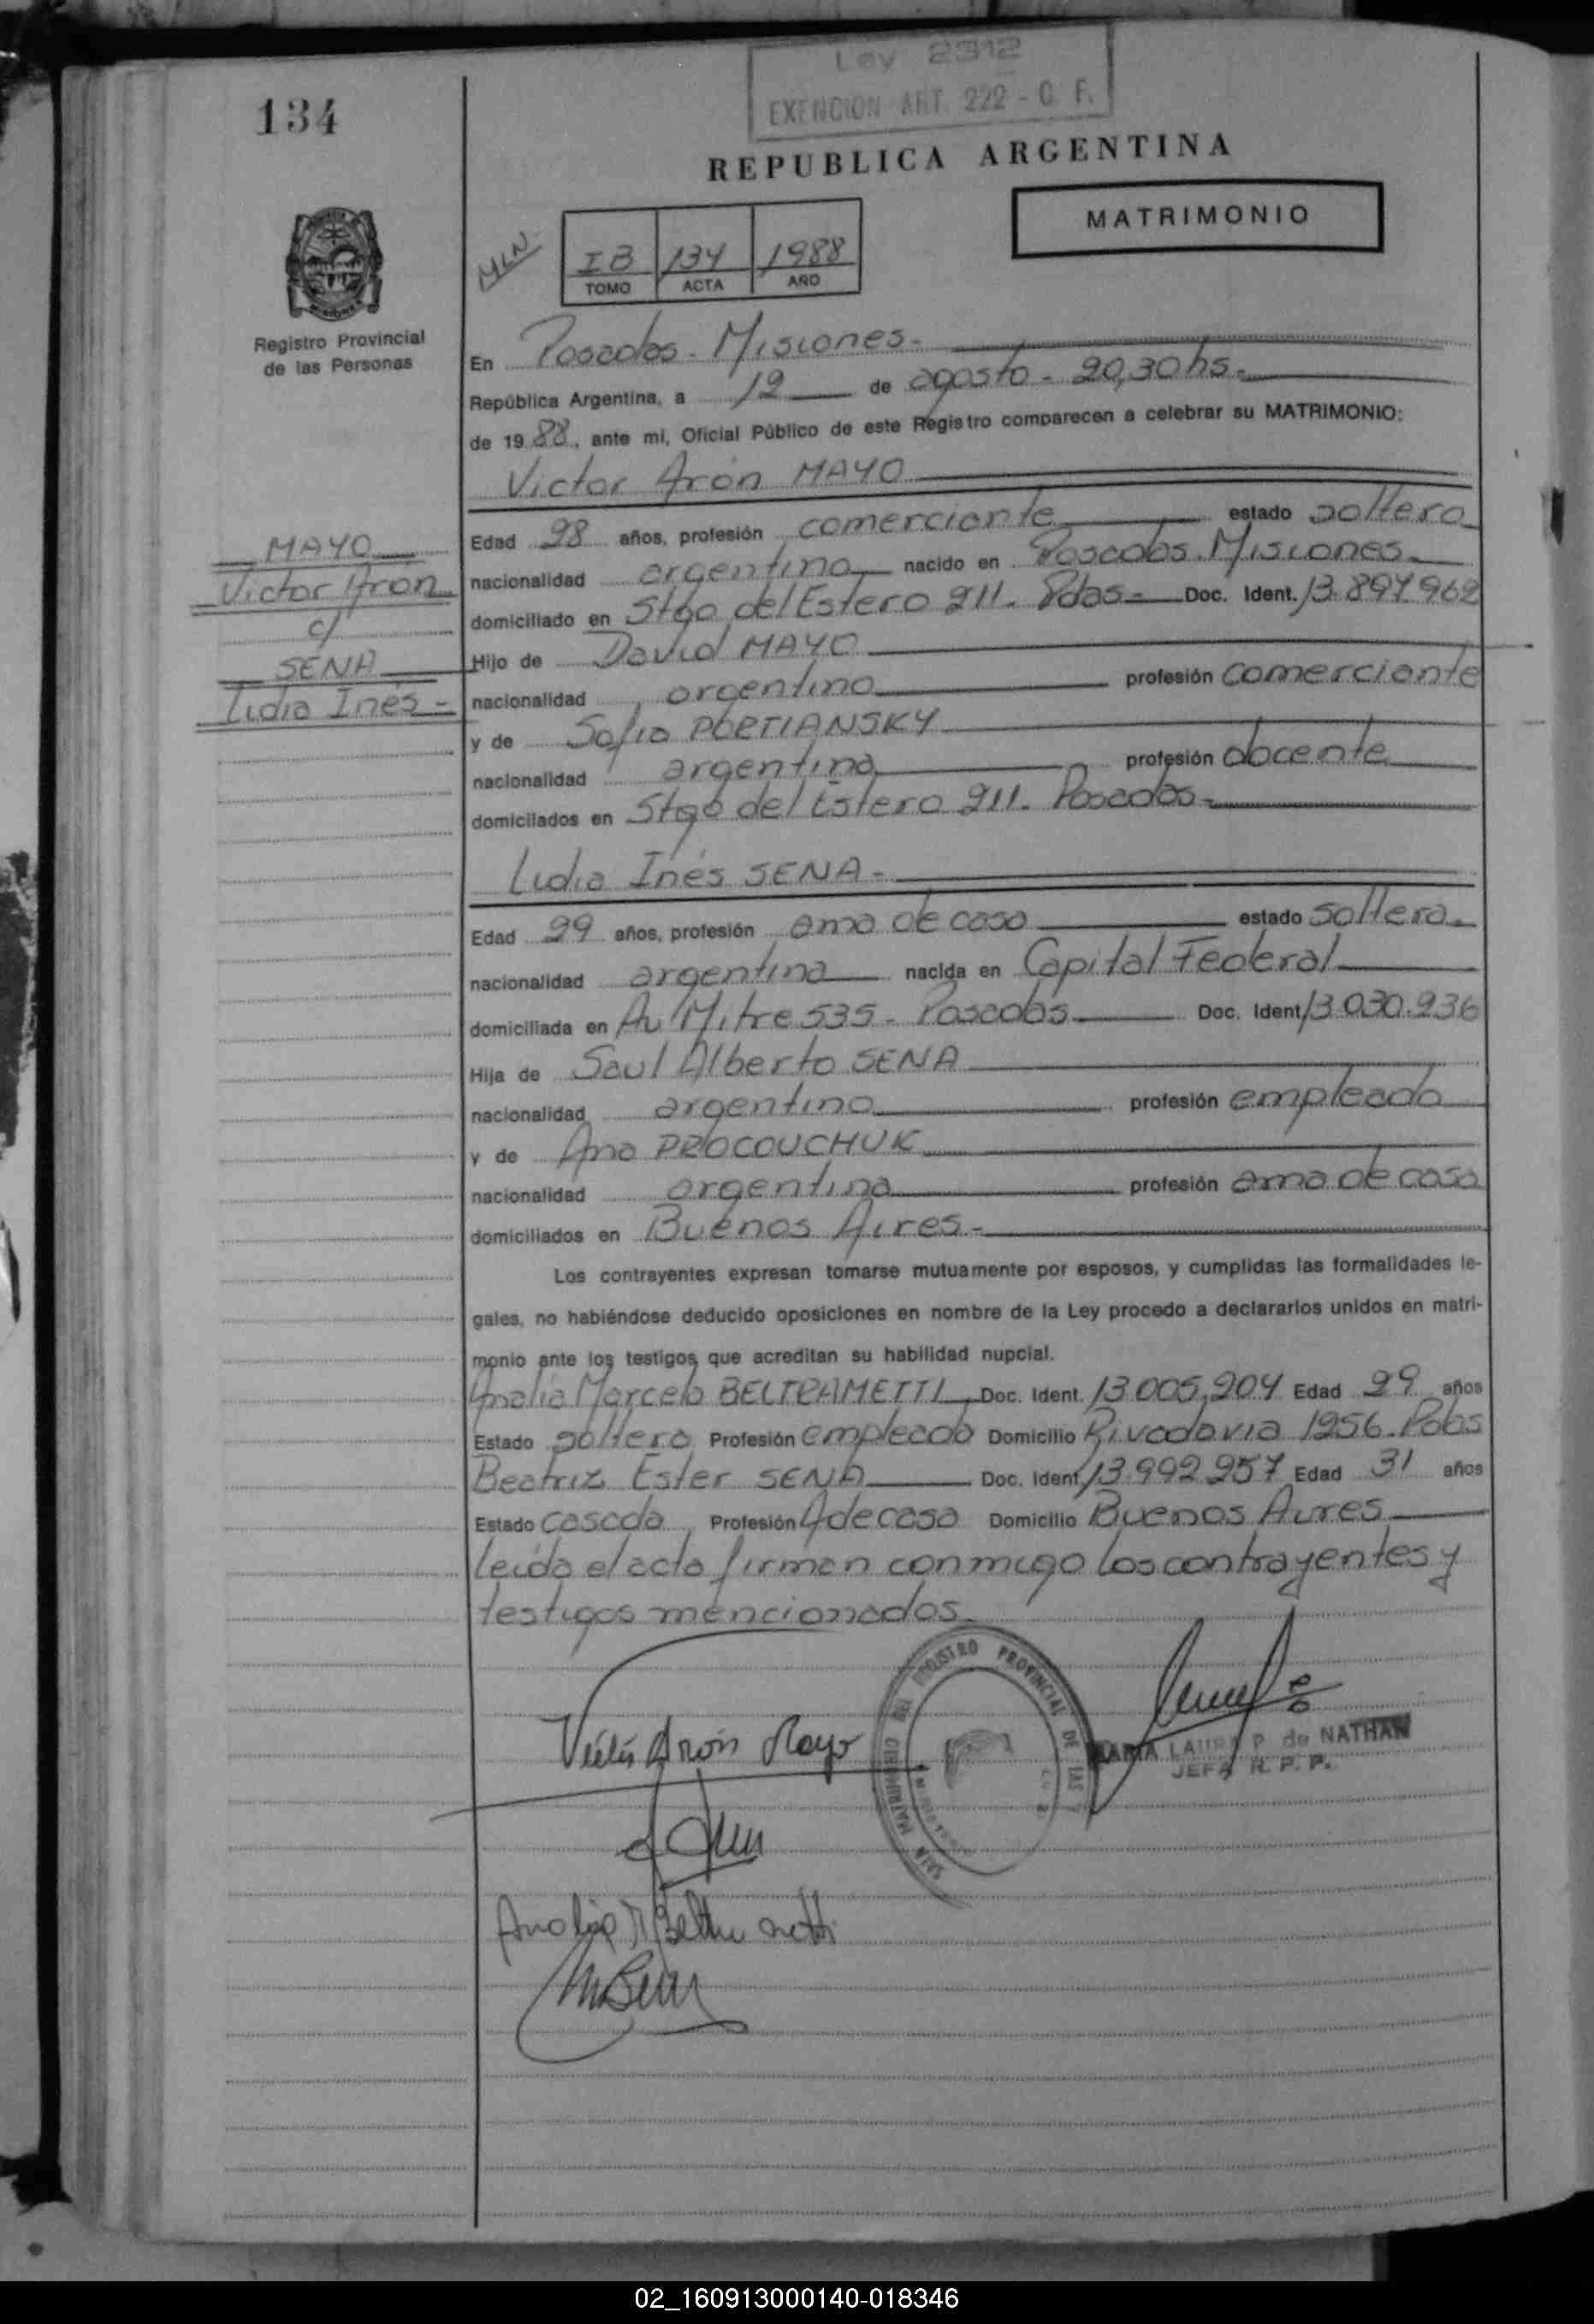 Ley 2312
EXENCION ART. 222 - C. F.
134
REPUBLICA ARGENTINA
MATRIMONIO
MLN
IB 134 1988
TOMO ACTA AÑO
Registro Provincial
de las Personas
En Posadas - Misiones -
República Argentina, a 12 de agosto - 20,30 hs -
de 1988, ante mi, Oficial Público de este Registro comparecen a celebrar su MATRIMONIO:
Victor Arón MAYO
Edad 28 años, profesión comerciante estado soltero
nacionalidad argentina nacido en Posadas. Misiones
domiciliado en Stgo del Estero 211. Pdas - Doc. Ident. 13.897.962
Hijo de David MAYO
nacionalidad argentino profesión comerciante
y de Sofia PORTIANSKY
nacionalidad argentina profesión docente
domicilados en Stgo del Estero 211. Posadas -
MAYO
Victor Arón
c/
SENA
Lidia Inés -
Lidia Inés SENA -
Edad 29 años, profesión ama de casa estado soltera
nacionalidad argentina nacida en Capital Federal
domiciliada en Av Mitre 535 - Posadas Doc. Ident 13.030.236
Hija de Saul Alberto SENA
nacionalidad argentino profesión empleado
y de Ana PROCOUCHUK
nacionalidad argentina profesión ama de casa
domiciliados en Buenos Aires -
Los contrayentes expresan tomarse mutuamente por esposos, y cumplidas las formalidades le-
gales, no habiéndose deducido oposiciones en nombre de la Ley procedo a declararlos unidos en matri-
monio ante los testigos que acreditan su habilidad nupcial.
Analia Marcela BELTRAMETTI Doc. Ident. 13.005.204 Edad 29 años
Estado soltera Profesión empleada Domicilio Rivadavia 1256. Pdas
Beatriz Ester SENA Doc. Ident 13.992.257 Edad 31 años
Estado casada Profesión A de casa Domicilio Buenos Aires
leída el acta firman conmigo los contrayentes y
testigos mencionados
Arón Mayo
REGISTRO PROVINCIAL DE LAS
MARIA LAURA P. de NATHAN
JEFA R. P. P.
02_160913000140-018346